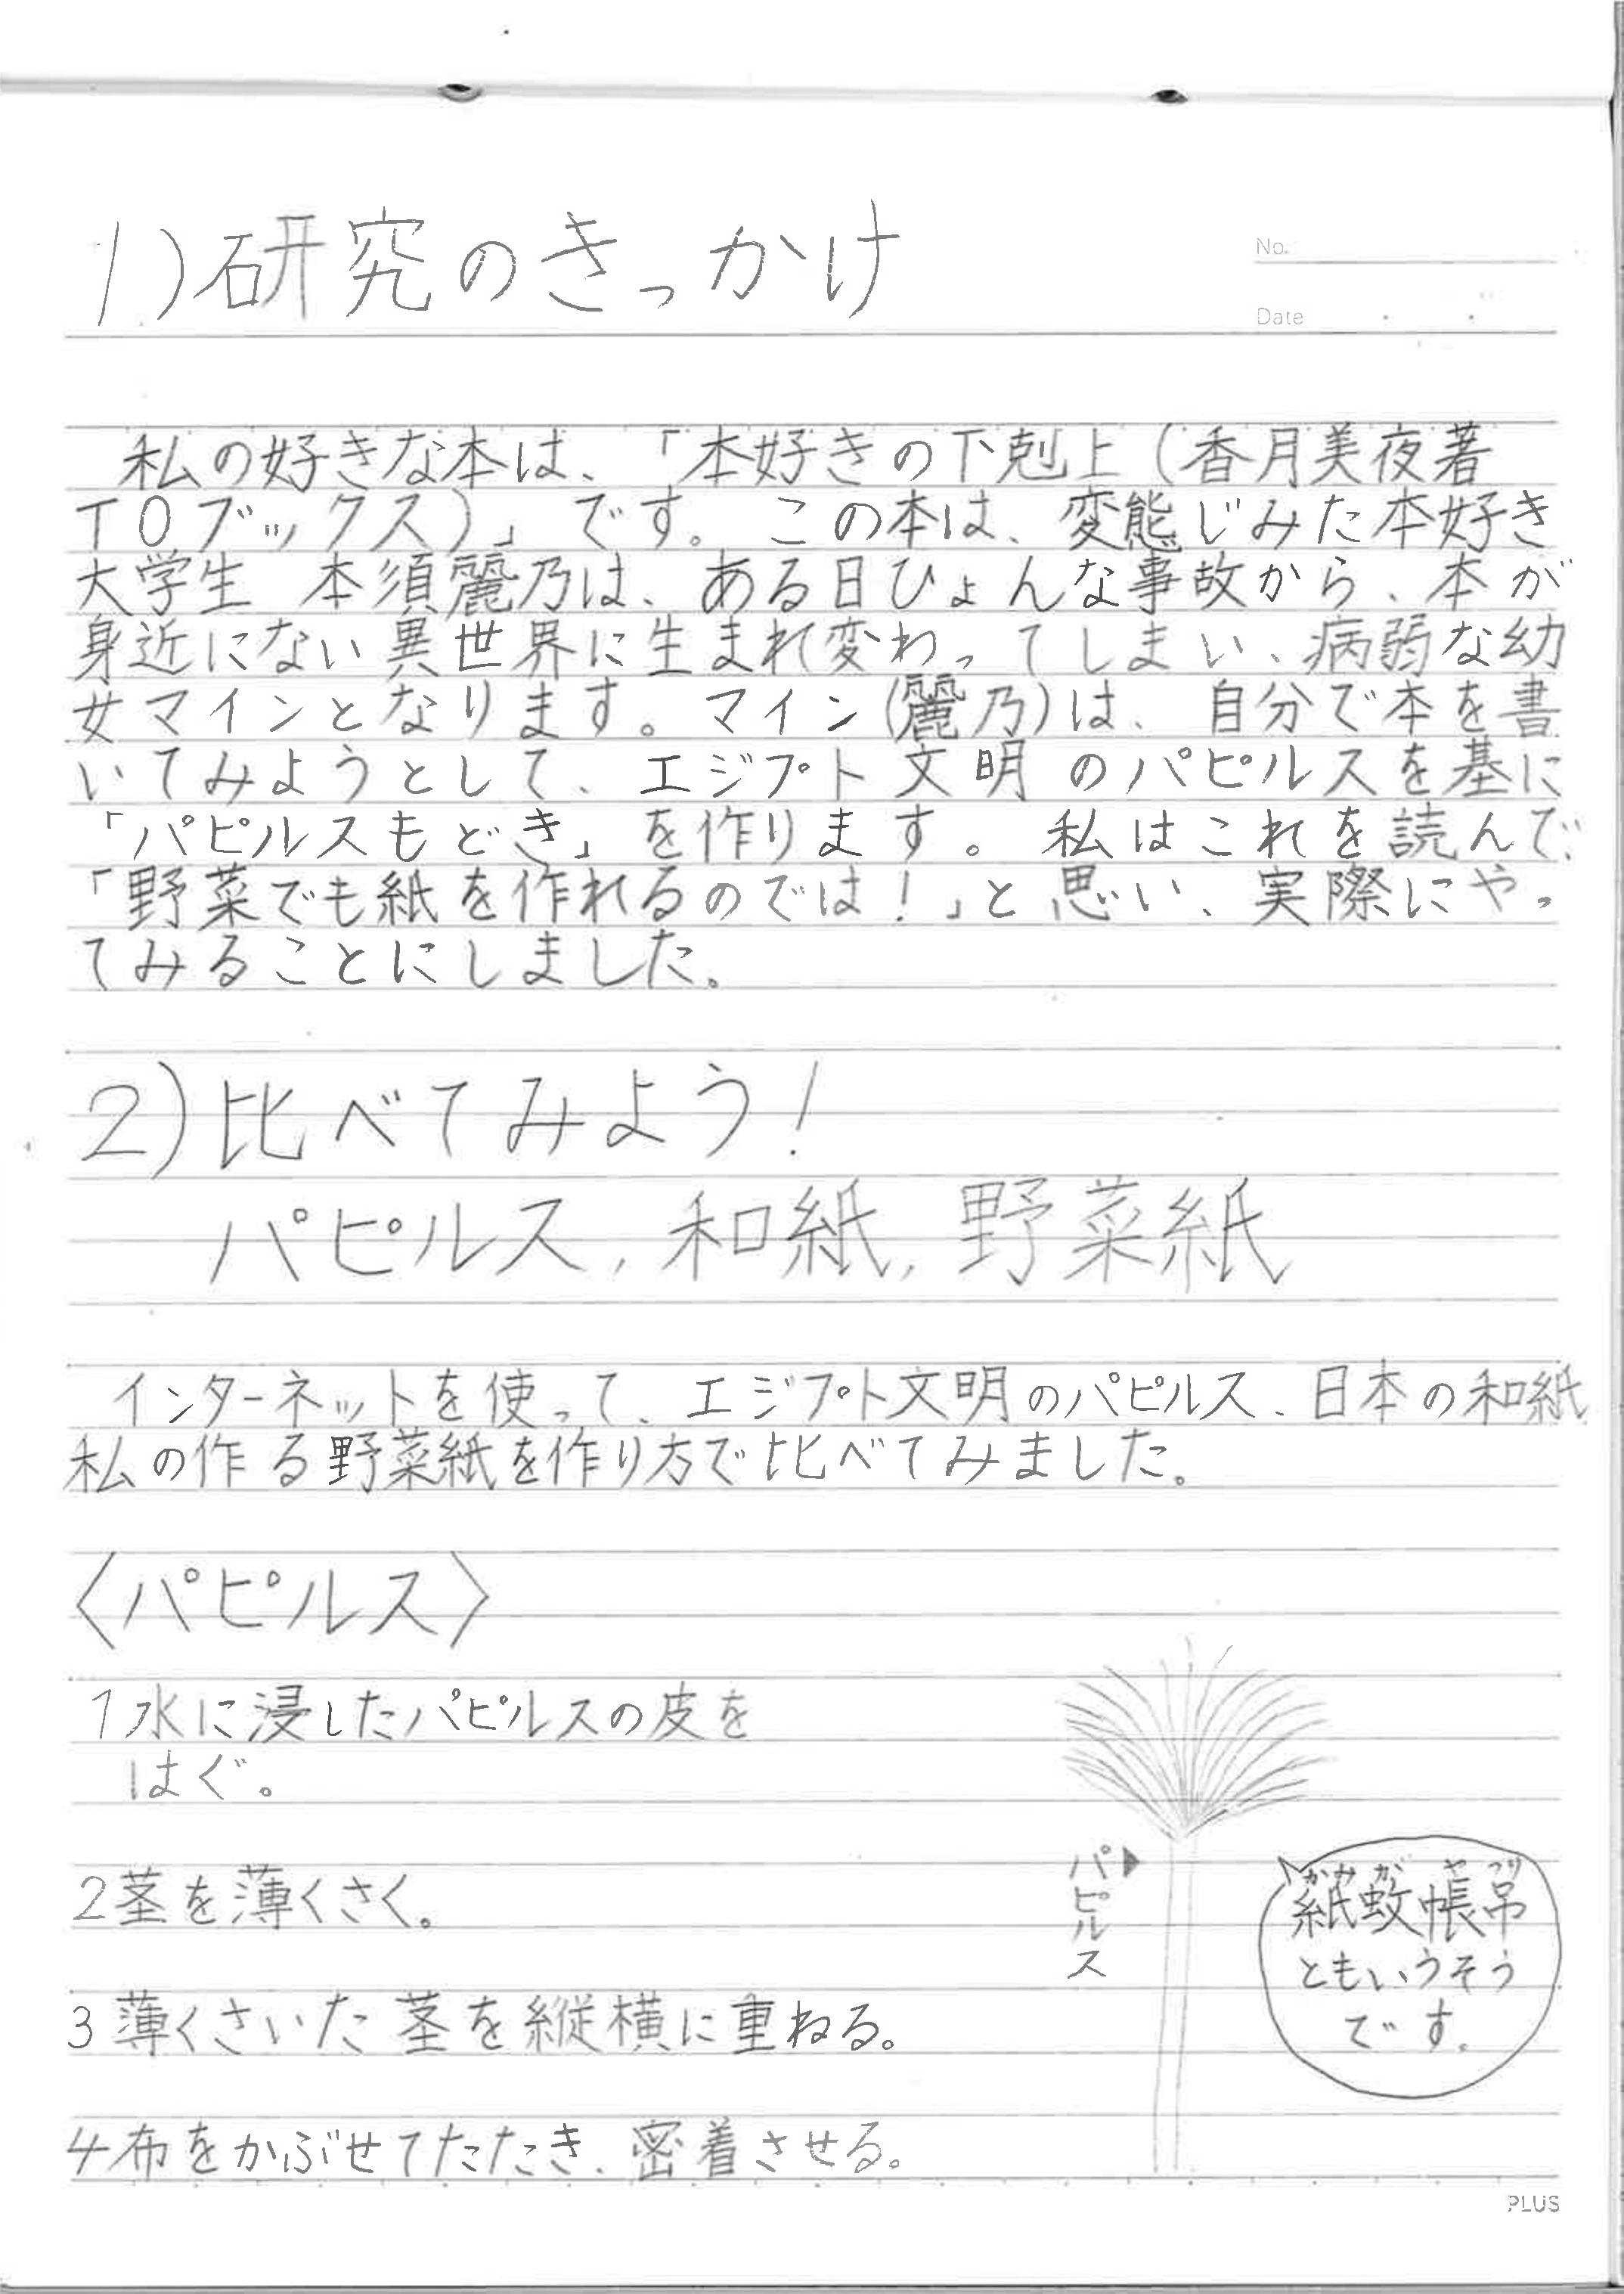 1)研究のきっかけ
No.
Date
私の好きな本は、「本好きの下剋上(香月美夜著
TOブックス)」です。この本は、変態じみた本好き
大学生 本須麗乃は、ある日ひょんな事故から、本が
身近にない異世界に生まれ変わってしまい、病弱な幼
女マインとなります。マイン(麗乃)は、自分で本を書
いてみようとして、エジプト文明のパピルスを基に
「パピルスもどき」を作ります。私はこれを読んで、
「野菜でも紙を作れるのでは!」と思い、実際にやっ
てみることにしました。
2)比べてみよう!
パピルス,和紙,野菜紙
インターネットを使って、エジプト文明のパピルス、日本の和紙
私の作る野菜紙を作り方で比べてみました。
〈パピルス〉
1水に浸したパピルスの皮を
はぐ。
2茎を薄くさく。
3薄くさいた茎を縦横に重ねる。
4布をかぶせてたたき、密着させる。
パピルス▶
かみがやつり
紙蚊帳吊
ともいうそう
です。
PLUS